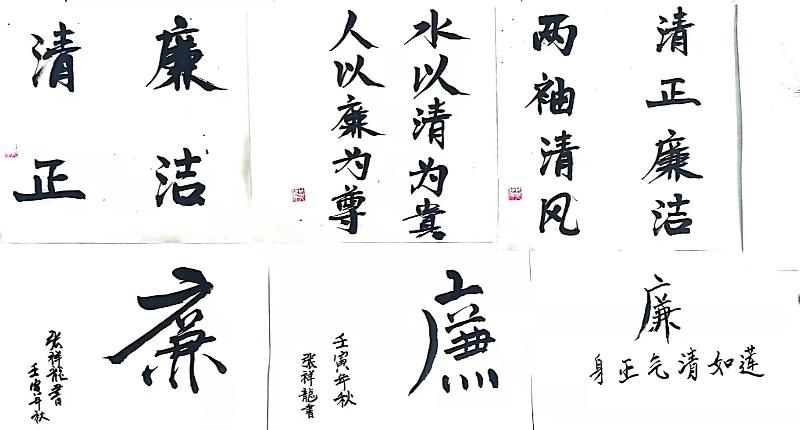 廉洁
清正
水以清为贵
人以廉为尊
清正廉洁
两袖清风
廉
张祥龙书
壬寅年秋
廉
壬寅年秋
张祥龙书
廉
莲如清气正身